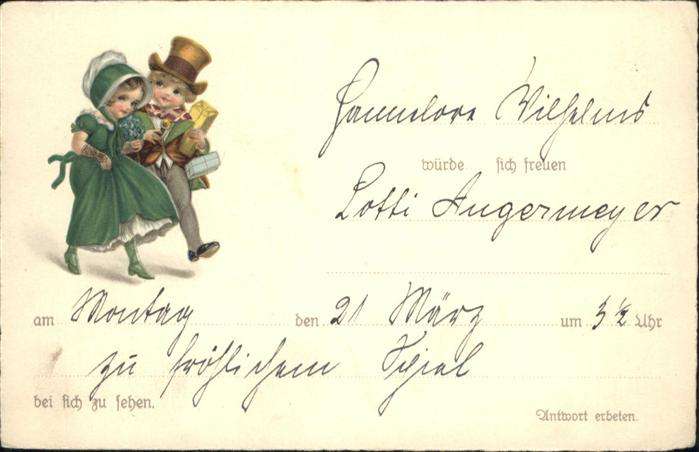 Hannelore Wilhelms
würde sich freuen
Lotti Angermeyer
am Montag den 21 März um 3½ Uhr
zu fröhlichem Spiel
bei sich zu sehen.
Antwort erbeten.